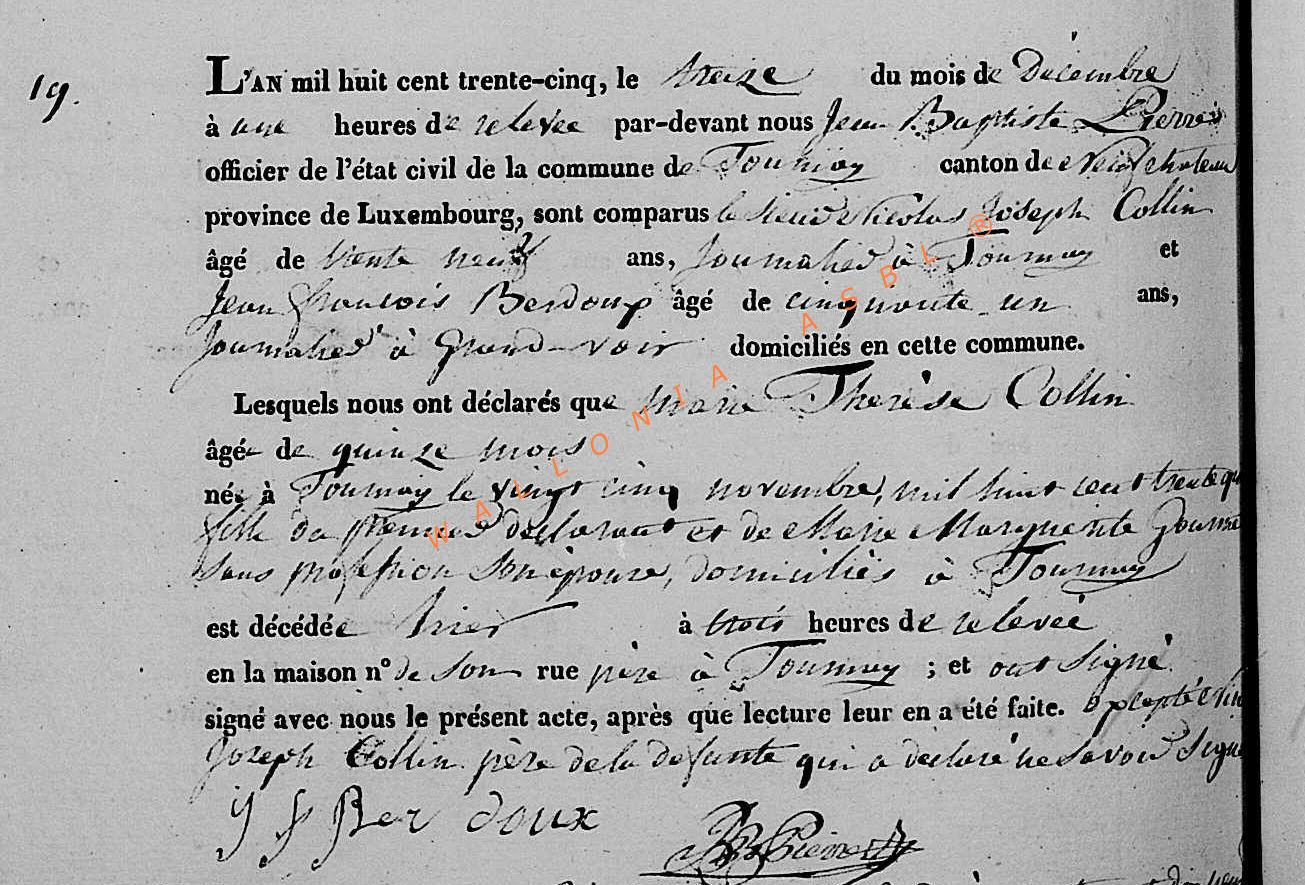 19.
L'AN mil huit cent trente-cinq, le treize du mois de Décembre
à une heures de relevée par-devant nous Jean Baptiste Pierret
officier de l'état civil de la commune de Tournay canton de Neufchateau
province de Luxembourg, sont comparus le sieur Nicolas Joseph Collin
âgé de trente neuf ans, Journalier à Tournay et
Jean françois Berdoux âgé de cinquante un ans,
Journalier à Grand-voir domiciliés en cette commune.
Lesquels nous ont déclarés que Marie Therése Collin
âgée de quinze mois
née à Tournay le vingt cinq novembre, mil huit cent trente qu
fille du premier déclarant et de Marie Marguerite
sans profession son épouse, domiciliés à Tournay
est décédée hier à trois heures de relevée
en la maison n° de son rue père à Tournay ; et ont signé
signé avec nous le présent acte, après que lecture leur en a été faite. Excepté
Joseph Collin père de la defunte qui a déclaré ne savoir signe
J f Ber doux
JB Pierret
WALLONIA ASBL ®